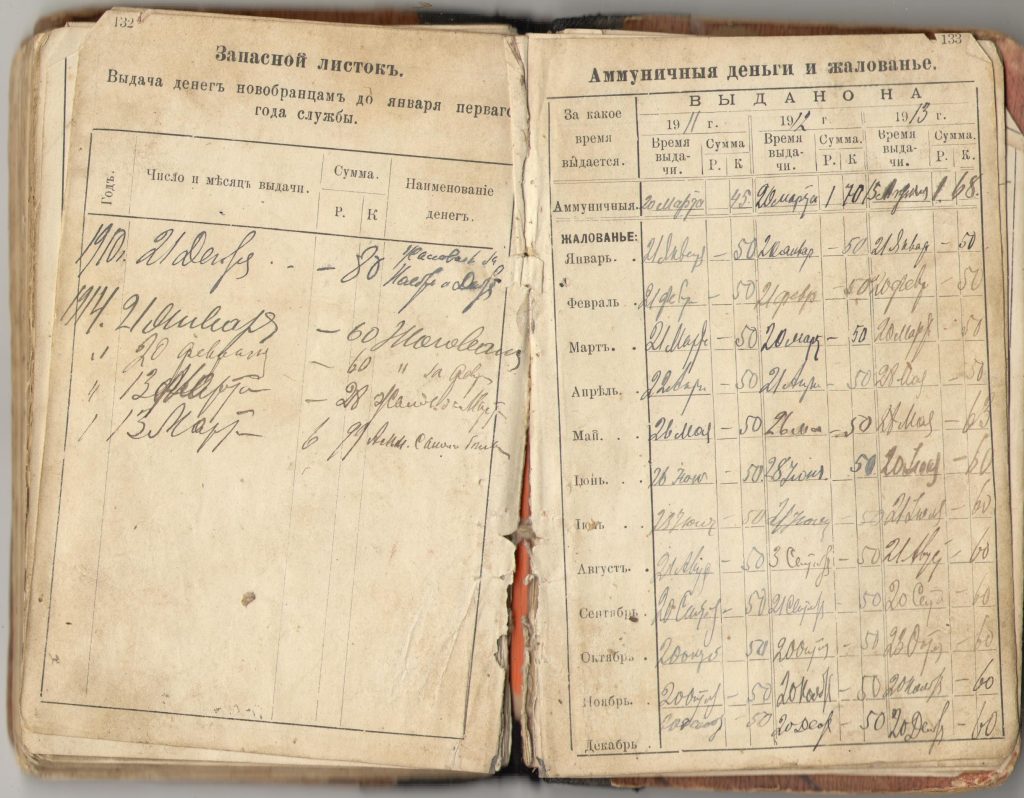 132
Запасной листокъ.
Выдача денег новобранцамъ до января перваго
года службы.
Годъ. Число и мѣсяцъ выдачи. Сумма. Наименованіе денегъ.
Р. К
1910г. 21 Декбр — 80 Жалованье за
Ноябрь и Декбр
1914. 21 Января — 60 Жалованье
" 20 февраля — 60 " за фев
" 13 Марта — 28 Жалов за Март
13 Март 6 99
133
Аммуничныя деньги и жалованье.
За какое время выдается. ВЫДАНО НА
1911 г. 1912 г 1913 г.
Время выда-чи. Сумма Время выда-чи. Сумма. Время выда-чи. Сумма.
Р. К Р. К Р. К.
Аммуничныя. 20 марта 45 20 марта 1 70 15 Апреля 1 68
ЖАЛОВАНЬЕ:
Январь. . 21 Января — 50 20 январ — 50 21 Январ — 50
Февраль . 21 фев — 50 21 февр — 50 20 февр — 50
Мартъ. . 21 Март — 50 20 март — 50 20 март — 50
Апрѣль. . 22 Апр — 50 21 Апр — 50 28 Мая — 50
Май. . . 26 Мая — 50 26 Мая — 50 28 Мая — 63
Іюнь. . . 26 июн — 50 28 Июня 50 20 Июня — 60
Іюль . . — 50 — 50 21 Июля — 60
Августъ. . 21 Авг — 50 3 Сентяб — 50 21 Август — 60
Сентябрь . 20 Сентяб — 50 21 Сентяб — 50 20 Сент — 60
Октябрь . 20 октб 50 20 Октяб — 50 23 Октб — 60
Ноябрь . . — 50 20 Нояб — 50 20 Нояб — 60
Декабрь . 50 20 Декб — 50 20 Декб — 60